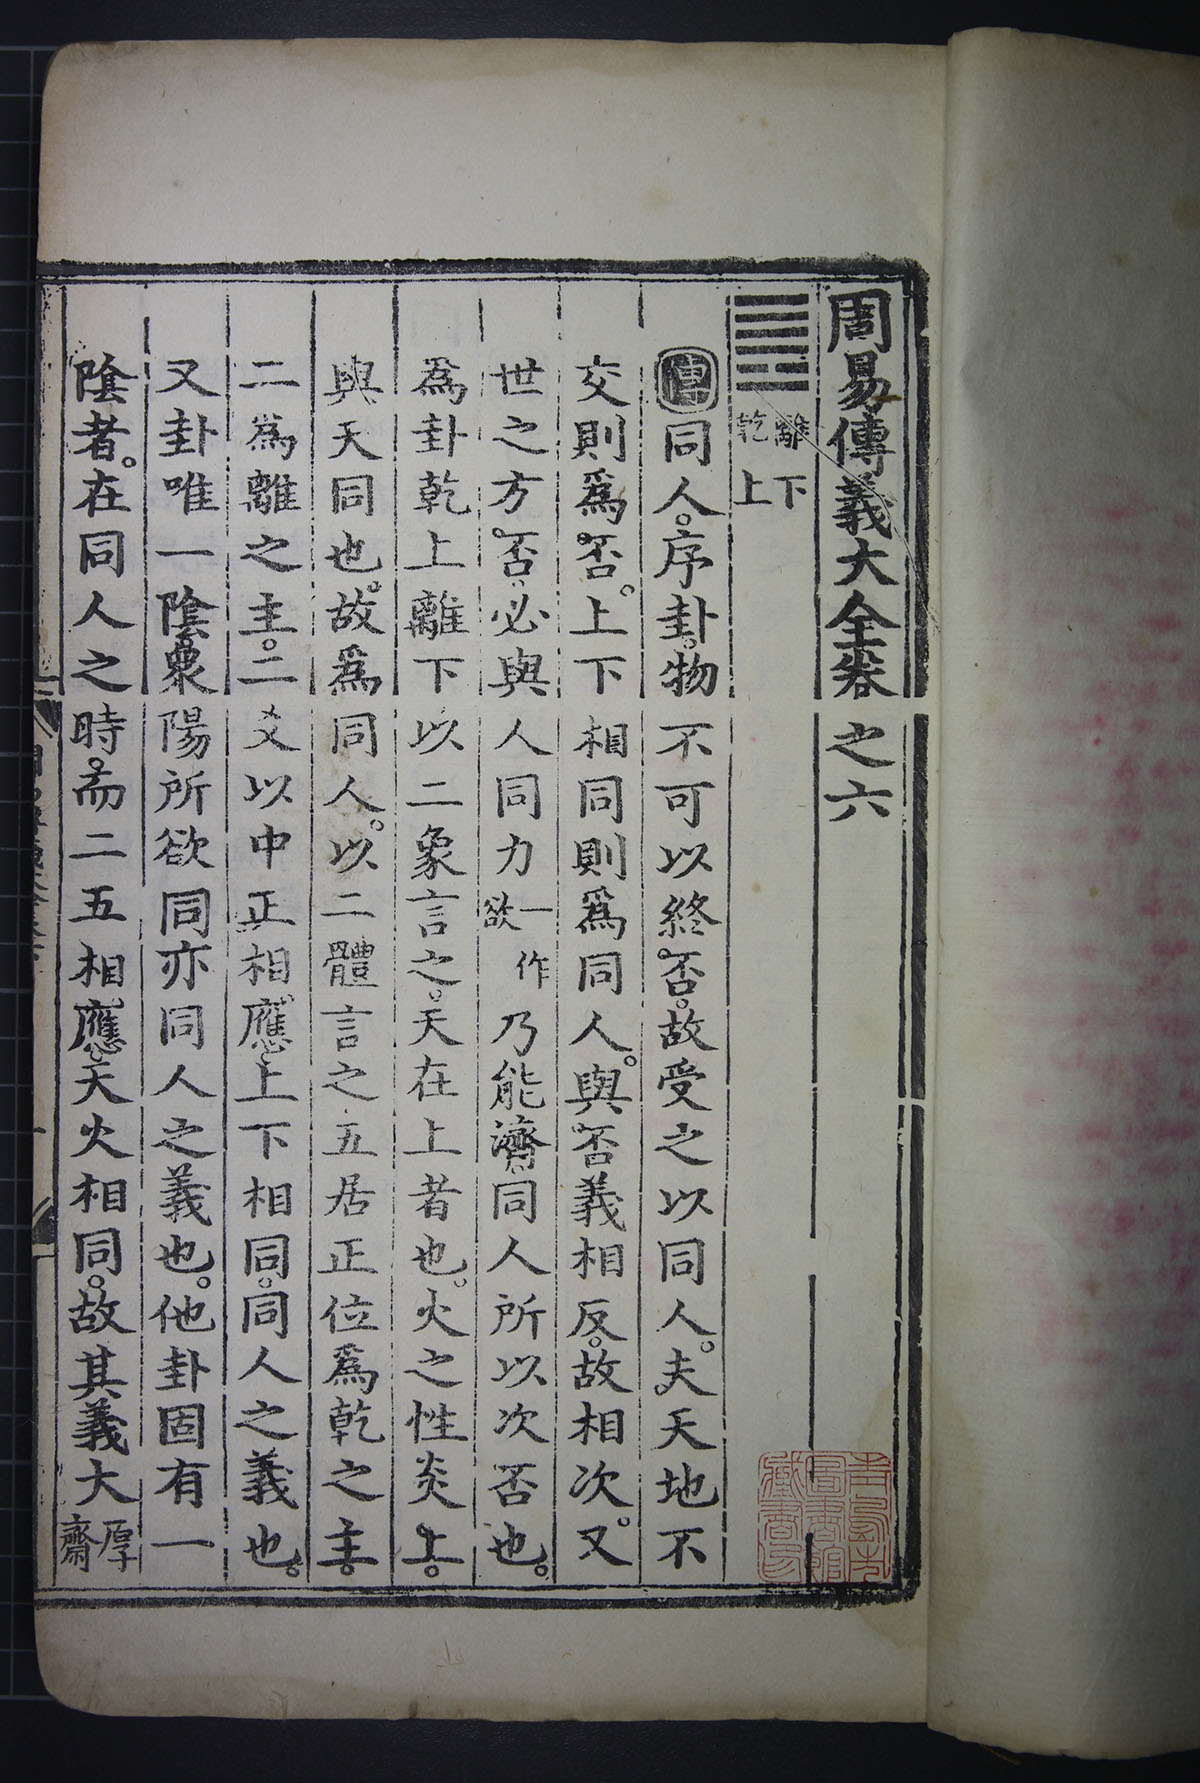 周易傳義大全卷之六
䷌離下乾上
傳同人。序卦。物不可以終否。故受之以同人。夫天地不
交則爲否。上下相同則爲同人。與否義相反。故相次。又
世之方否。必與人同力一作欲乃能濟。同人所以次否也。
爲卦乾上離下以二象言之。天在上者也。火之性炎上。
與天同也。故爲同人。以二體言之五居正位爲乾之主。
二爲離之主。二爻以中正相應。上下相同。同人之義也。
又卦唯一陰衆陽所欲同亦同人之義也。他卦固有一
陰者。在同人之時。而二五相應。天火相同。故其義大厚齋